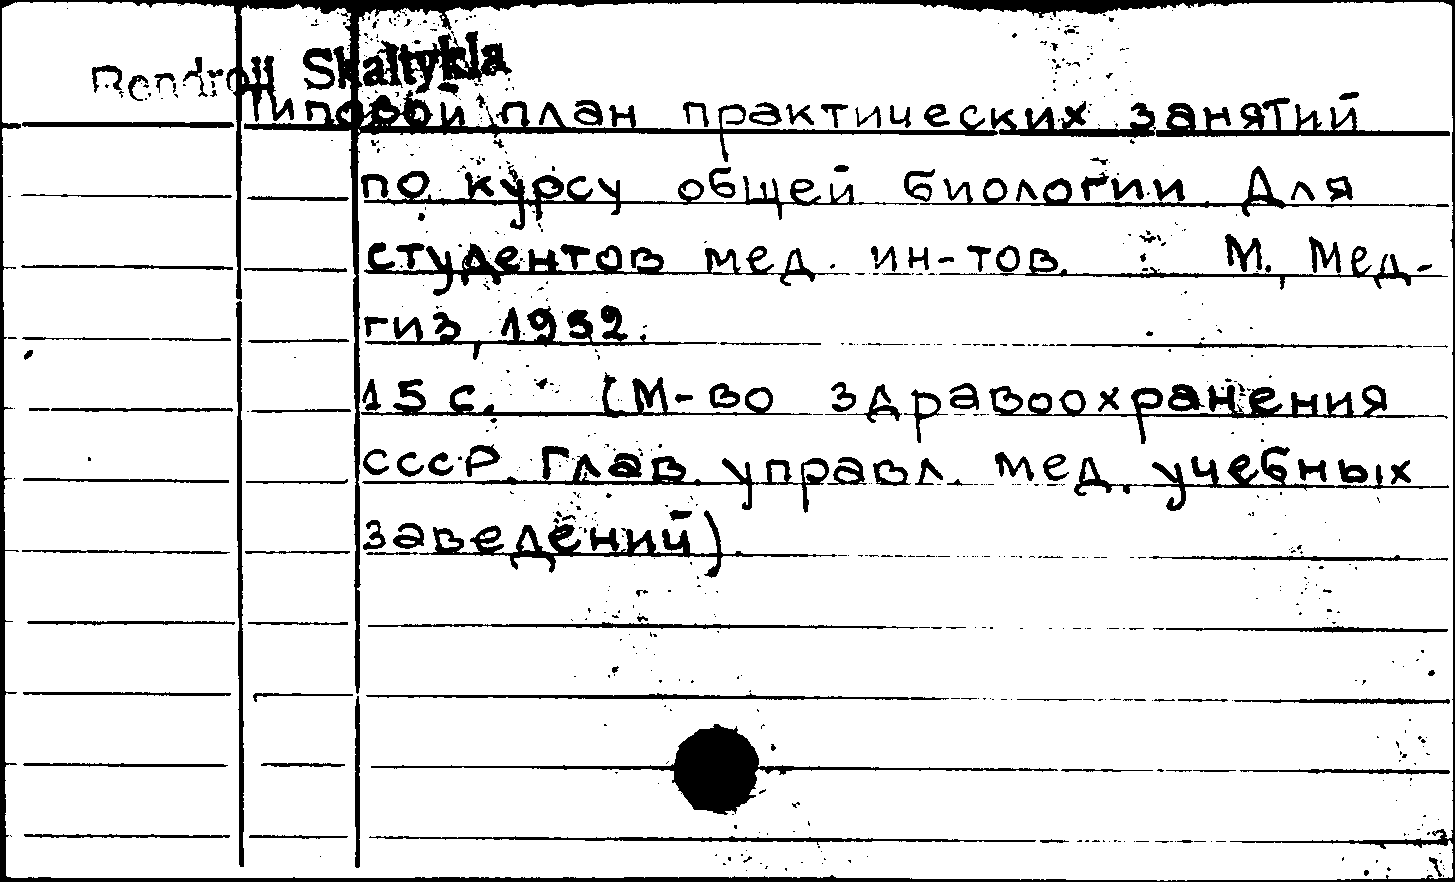 Bendroji Skaitykla
Типовой план практических занятий
по курсу общей биологии. Для
студентов мед. ин-тов. М., Мед-
гиз, 1952.
15 с. (М-во здравоохранения
СССР. Глав. управл. мед. учебных
заведений).